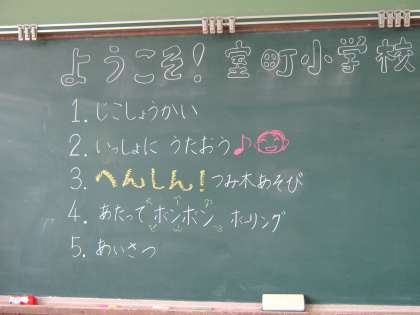 ようこそ!室町小学校
1. じこしょうかい
2. いっしょに うたおう♪
3. へんしん!つみ木あそび
4. あたって ボンボン ボーリング
5. あいさつ